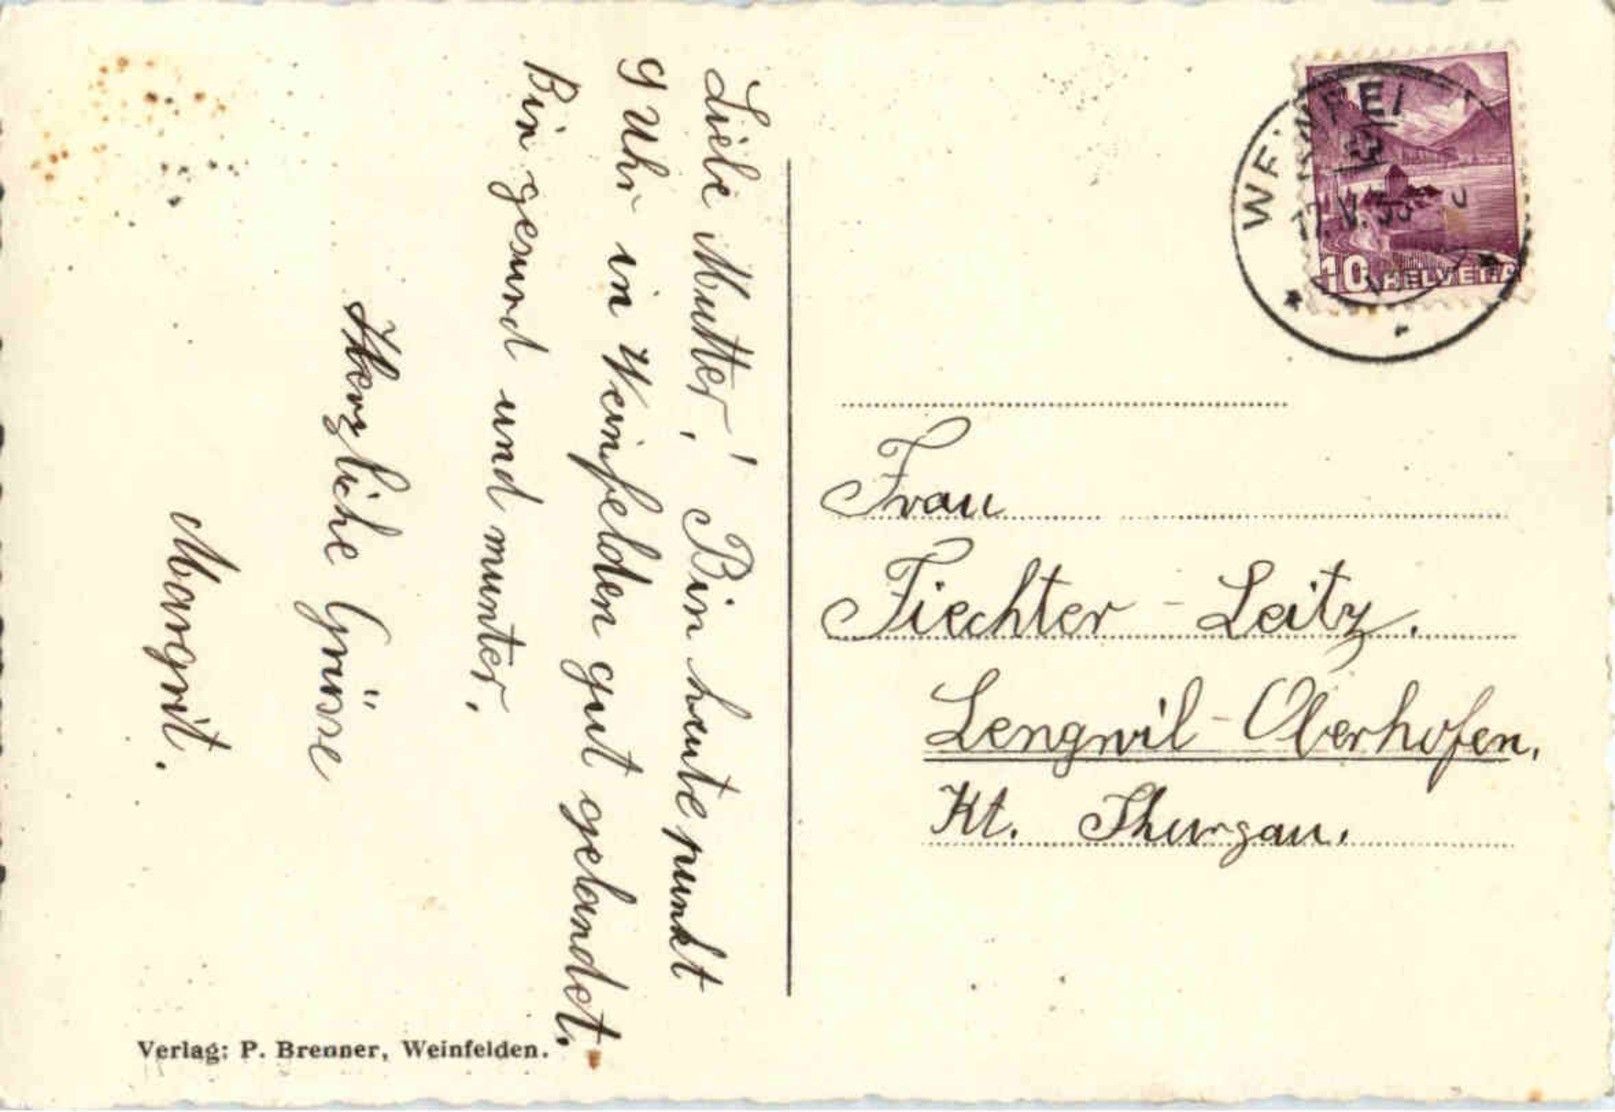 Liebe Mutter! Bin heute punkt
9 Uhr in Weinfelden gut gelandet.
Bin gesund und munter.
Herzliche Grüsse
Margrit.
Verlag: P. Brenner, Weinfelden.
10 HELVETIA
Frau
Fiechter - Leitz.
Lengwil - Oberhofen.
Kt. Thurgau.